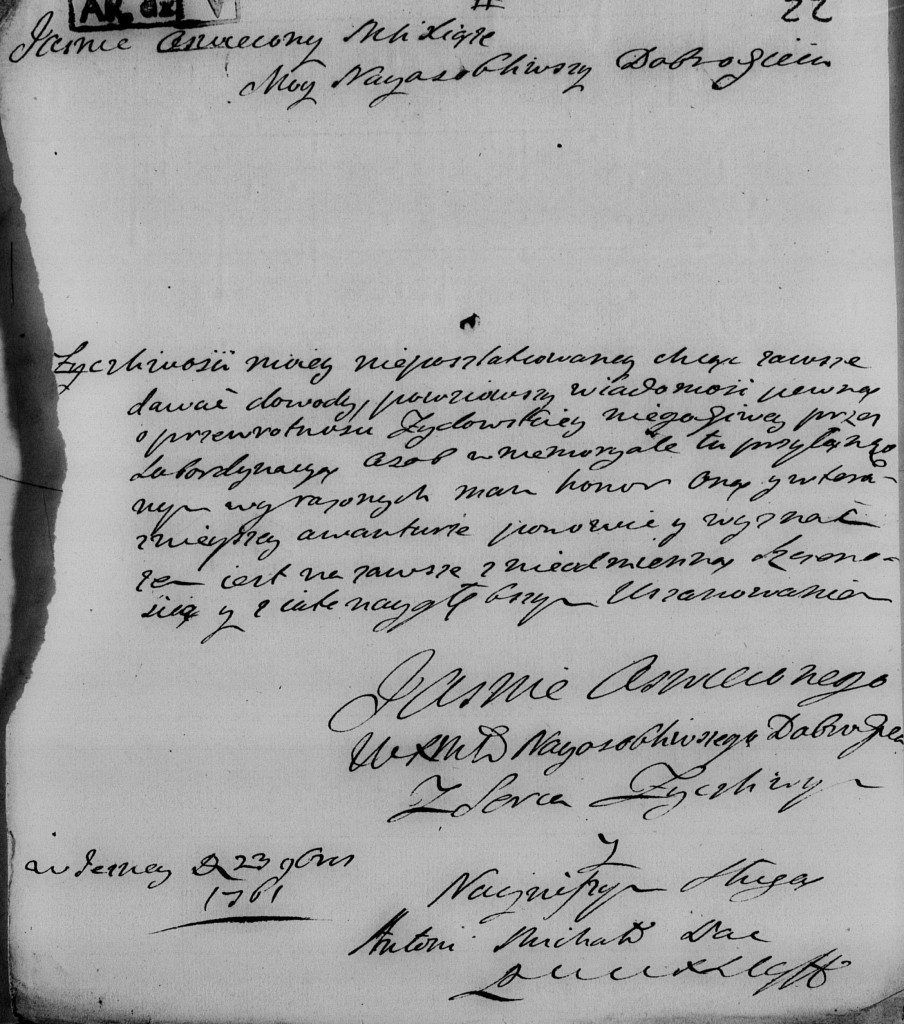 AR. dz V
22
Jasnie Oswiecony Mći Xiąze
Moy Nayosobliwszy Dobrodzieiu
Zyczliwosci moiey nieposzlakowaney chcąc zawsze
dawać dowody, powziowszy wiadomość pewną
o przewrotnosci Zydowskiey niegodziwey przez
subordynacyą Osob w memoryale tu przyłączo
nym wyrazonych mam honor Oną y w tera-
znieyszey awanturze ponowić y wyznać
zem iest na zawsze z nieodmienną
scią y z całe naygłębszym Uszanowaniem
Jasnie Oswieconego
WXMći Nayosobliwszego Dobrodzieia
Z Serca Zyczliwym
w Jezney D 23 9bris
1761
y
Nayniższym Sługą
Antoni Michał Pac